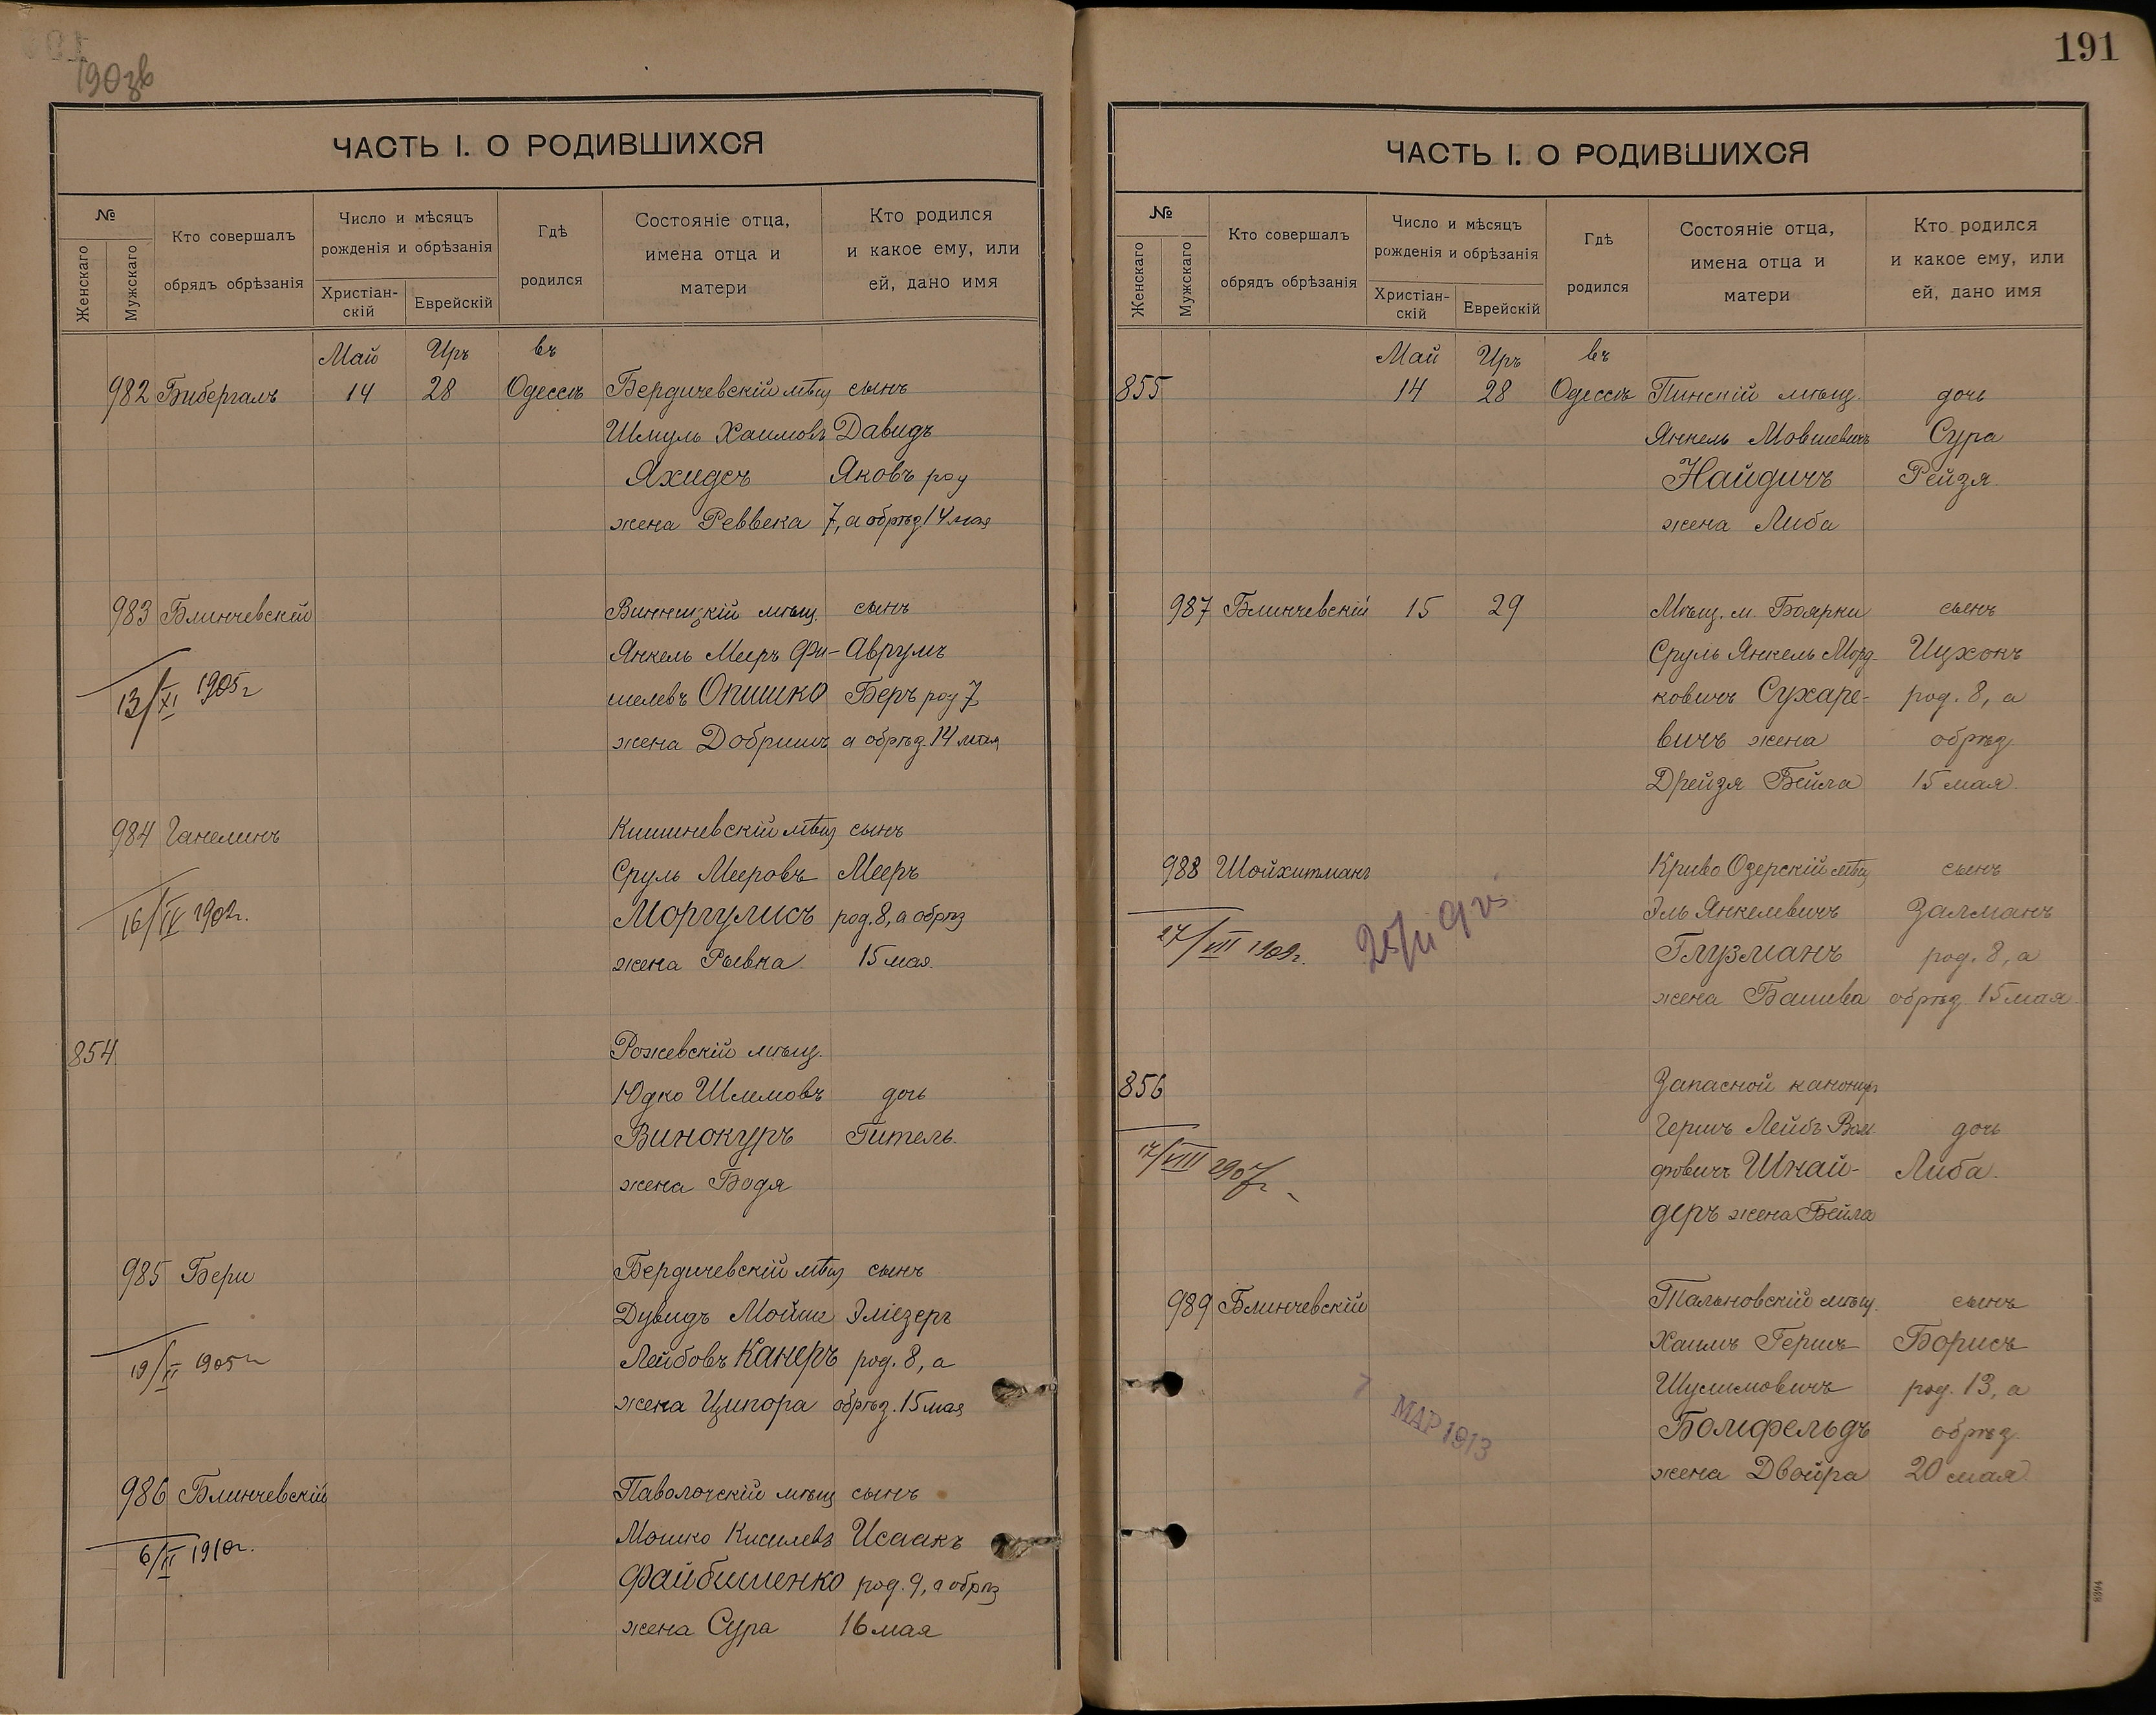 190зв
ЧАСТЬ I. О РОДИВШИХСЯ
№
Женскаго
Мужскаго
Кто совершалъ
обрядъ обрѣзанія
Число и мѣсяцъ
рожденія и обрѣзанія
Христіан-
скій
Еврейскій
Гдѣ
родился
Состояніе отца,
имена отца и
матери
Кто родился
и какое ему, или
ей, дано имя
Май Иръ въ
982 Бибергалъ 14 28 Одессѣ Бердичевскій мѣщ сынъ
Шмуль Хаимовъ Давидъ
Яхидсъ Яковъ род
жена Реввека 7, а обрѣз 14 мая
983 Блинчевскій Винницкій мѣщ. сынъ
Янкель Мееръ Фи- Аврумъ
13/XI 1905г шелевъ Опишко Беръ род 7
жена Добришъ а обрѣз 14 мая
984 Ганелинъ Кишиневскій мѣщ сынъ
Сруль Мееровъ Мееръ
16/IV 1902г. Моргулисъ род. 8, а обрѣз
жена Рывка 15 мая.
854 Рожевскій мѣщ.
Юдко Шлемовъ дочь
Винокуръ Гитель.
жена Бодя
985 Бери Бердичевскій мѣщ сынъ
Дувидъ Мойше Эліезеръ
19/II 1905г Лейбовъ Канеръ род. 8, а
жена Ципора обрѣз. 15 мая
986 Блинчевскій Паволочскій мѣщ сынъ
6/II 1910г. Мошко Киселевъ Исаакъ
Файбишенко род. 9, а обрѣз
жена Сура 16 мая
191
ЧАСТЬ I. О РОДИВШИХСЯ
№
Женскаго
Мужскаго
Кто совершалъ
обрядъ обрѣзанія
Число и мѣсяцъ
рожденія и обрѣзанія
Христіан-
скій
Еврейскій
Гдѣ
родился
Состояніе отца,
имена отца и
матери
Кто родился
и какое ему, или
ей, дано имя
Май Иръ въ
855 14 28 Одессѣ Пинскій мѣщ. дочь
Янкель Мовшевичъ Сура
Найдичъ Рейзя
жена Либа
987 Блинчевскій 15 29 Мѣщ. м. Боярки сынъ
Сруль Янкель Морд- Ицхокъ
ковичъ Сухаре- род. 8, а
вичъ жена обрѣз
Дрейзя Бейла 15 мая.
988 Шойхитманъ Криво Озерскій мѣщ сынъ
Эль Янкелевичъ Залманъ
27/VII 1909г. Глузманъ род. 8, а
жена Башива обрѣз 15 мая.
856 Запасной канониръ
Гершъ Лейбъ Вол дочь
17/VIII 1907г фовичъ Шнай- Либа.
деръ жена Бейла
989 Блинчевскій Тальновскій мѣщ. сынъ
Хаимъ Гершъ Борисъ
Шулимовичъ род. 13, а
7 МАР 1913 Бомфельдъ обрѣз.
жена Двойра 20 мая
8394